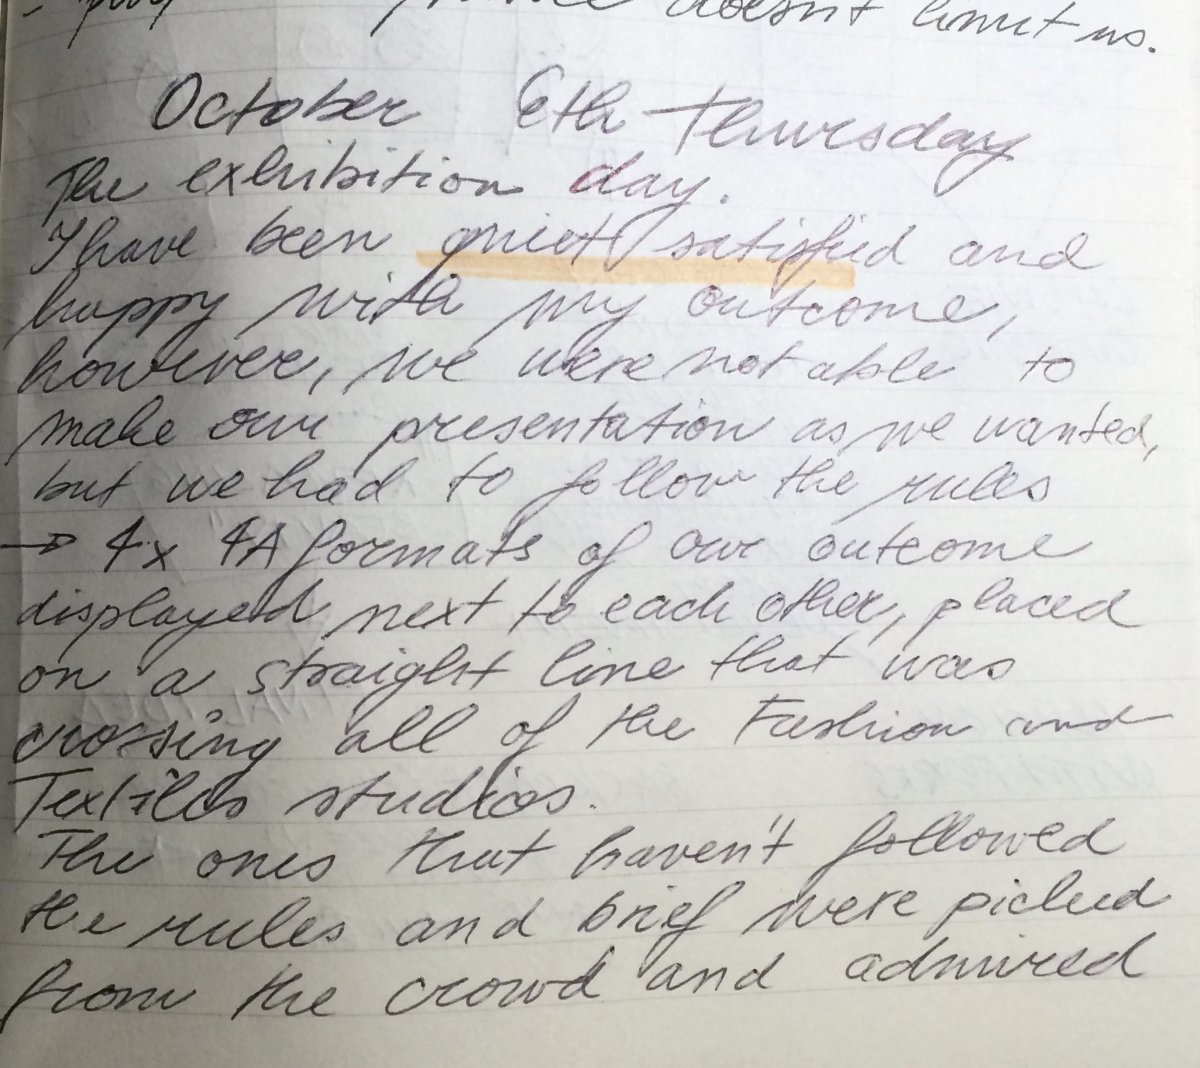 doesn't limit us.
October 6th Thursday
The exhibition day.
I have been quiet satisfied and
happy with my outcome,
however, we were not able to
make our presentation as we wanted,
but we had to follow the rules
→ 4x 4A formats of our outcome
displayed next to each other, placed
on a straight line that was
crossing all of the Fashion and
Textiles studios.
The ones that haven't followed
the rules and brief were picked
from the crowd and admired